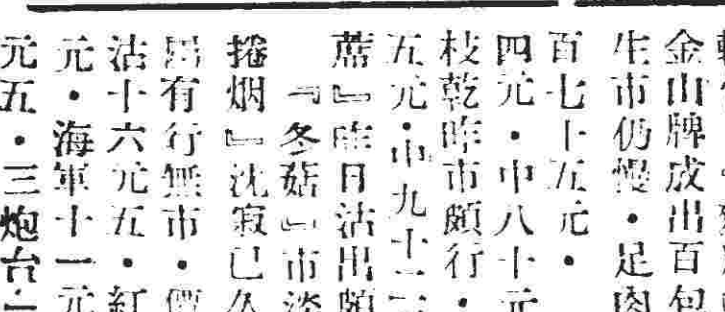 金山牌成出百包
生市仍慢・足肉
百七十五元・
四元・中八十元
枝乾昨市頗行・
五元・中九十二三
蔗』昨日沽出頗
『冬菇』市淡
捲烟』沈寂已久
有行無市・價
沽十六元五・紅
元・海軍十一元
元五・三炮台一